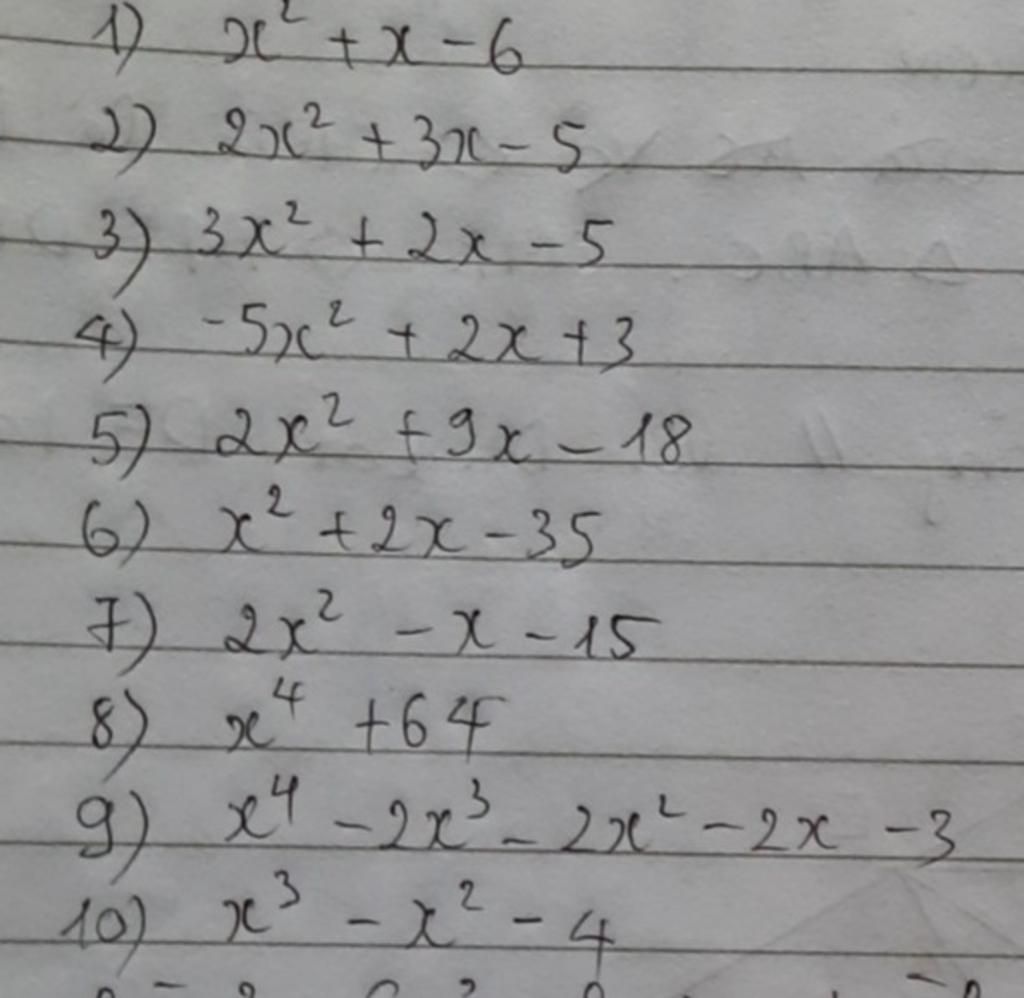 1) x² + x - 6
2) 2x² + 3x - 5
3) 3x² + 2x - 5
4) -5x² + 2x + 3
5) 2x² + 9x - 18
6) x² + 2x - 35
7) 2x² - x - 15
8) x⁴ + 64
9) x⁴ - 2x³ - 2x² - 2x - 3
10) x³ - x² - 4